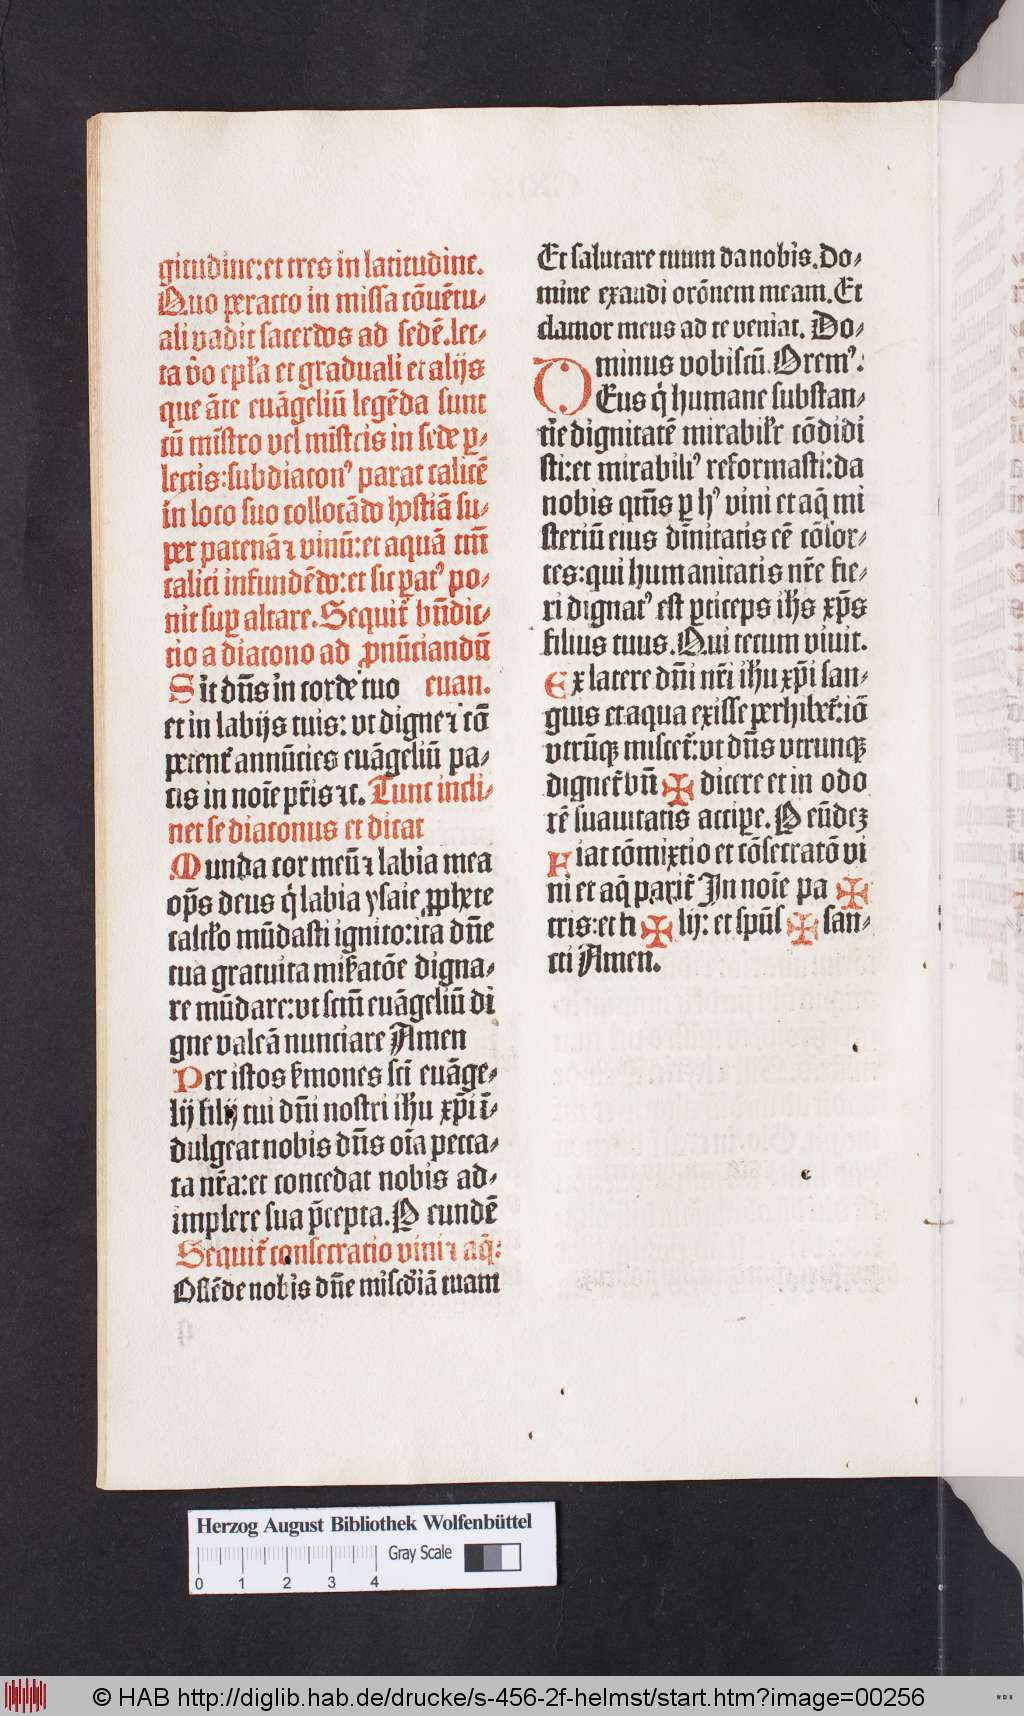 gitudine: et tres in latitudine.
Quo peracto in missa cōuētu⸗
ali vadit sacerdos ad sedē. lec⸗
ta v̄o epl̄a et graduali et alijs
que āte euāgeliū legēda sunt
cū mīstro vel mīstris in sede ꝑ⸗
lectis: subdiacon⁹ parat calicē
in loco suo collocādo hostiā su⸗
per patenā ⁊ vinū: et aquā cum̄
calici infundēdo: et sic ꝑat⁹ po⸗
nit suꝑ altare. Sequit̄ bn̄dic⸗
tio a diacono ad ꝓnūciandū
Sit dn̄s in corde tuo euan.
et in labijs tuis: vt digne ⁊ cō
petent᷑ annūcies euāgeliū pa⸗
cis in noīe pr̄is ⁊c. Tunc incli⸗
net se diaconus et dicat
Munda cor meū ⁊ labia mea
op̄s deus q̇ labia ysaie ꝓphete
calc̄lo mūdasti ignito: ita dn̄e
tua gratuita mis̄atōe digna⸗
re mūdare: vt scm̄ euāgeliū di
gne valeā nunciare Amen
Per istos s̄mones sc̄i euāge⸗
lij filij tui dn̄i nostri ih̄u xp̄i ī⸗
dulgeat nobis dn̄s oīa pecca⸗
ta nr̄a: et concedat nobis ad⸗
implere sua p̄cepta. P eundē
Sequit̄ consecratio vini ⁊ aq̄:
Ostēde nobis dn̄e misc̄diā tuam
Et salutare tuum da nobis. Do⸗
mine exaudi orōnem meam. Et
clamor meus ad te veniat. Do⸗
minus vobiscū. Orem⁹:
DEus q̇ humane substan⸗
tie dignitatē mirabilit̄ cōdidi
sti: et mirabili⁹ reformasti: da
nobis qm̄s ꝑ h⁹ vini et aq̄ mi
steriū eius diīnitatis eē cōsor⸗
tes: qui humanitatis nr̄e fie⸗
ri dignat⁹ est ꝑticeps ih̄s xp̄s
filius tuus. Qui tecum viuit.
Ex latere dn̄i nr̄i ih̄u xp̄i san⸗
guis et aqua exisse perhibet̄: iō
vtrūqꝫ miscet̄: vt dn̄s vtrunqꝫ
dignet̄ bn̄ ✠ dicere et in odo
rē suauitatis accipe. P eūdeꝫ
Fiat cōmixtio et cōsecratō vi
ni et aq̄ parit̄ In noīe pa ✠
tris: et fi ✠ lij: et spūs ✠ san⸗
cti Amen.
Herzog August Bibliothek Wolfenbüttel
Gray Scale
0 1 2 3 4
© HAB http://diglib.hab.de/drucke/s-456-2f-helmst/start.htm?image=00256